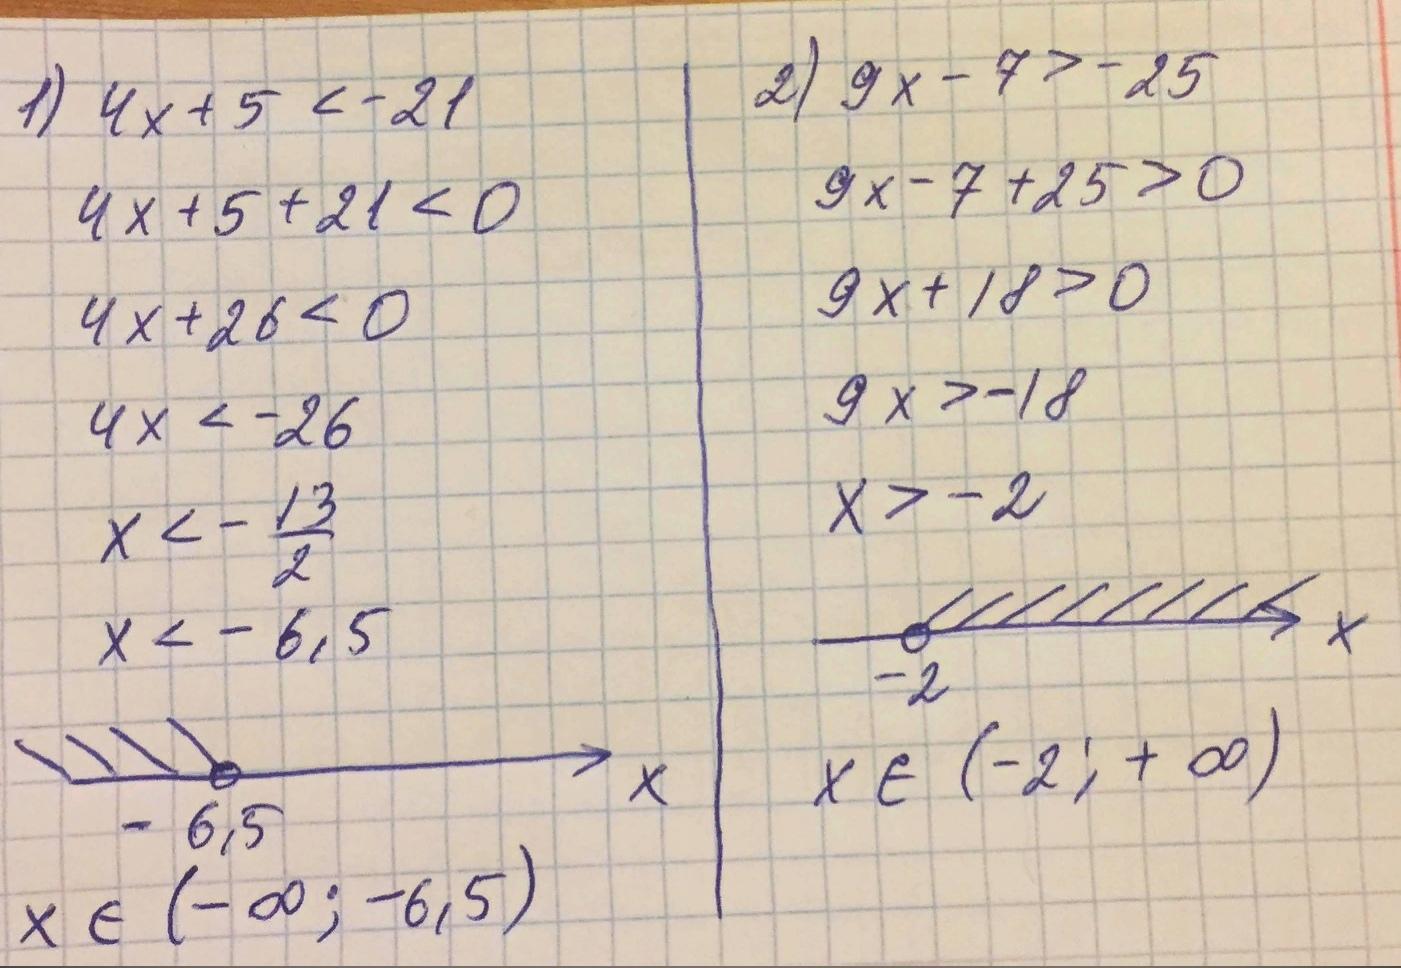 1) 4x + 5 < -21
4x + 5 + 21 < 0
4x + 26 < 0
4x < -26
x < - 13/2
x < - 6,5
x
- 6,5
x ∈ (- ∞; -6,5)
2) 9x - 7 > -25
9x - 7 + 25 > 0
9x + 18 > 0
9x > -18
x > -2
x
-2
x ∈ (-2; + ∞)